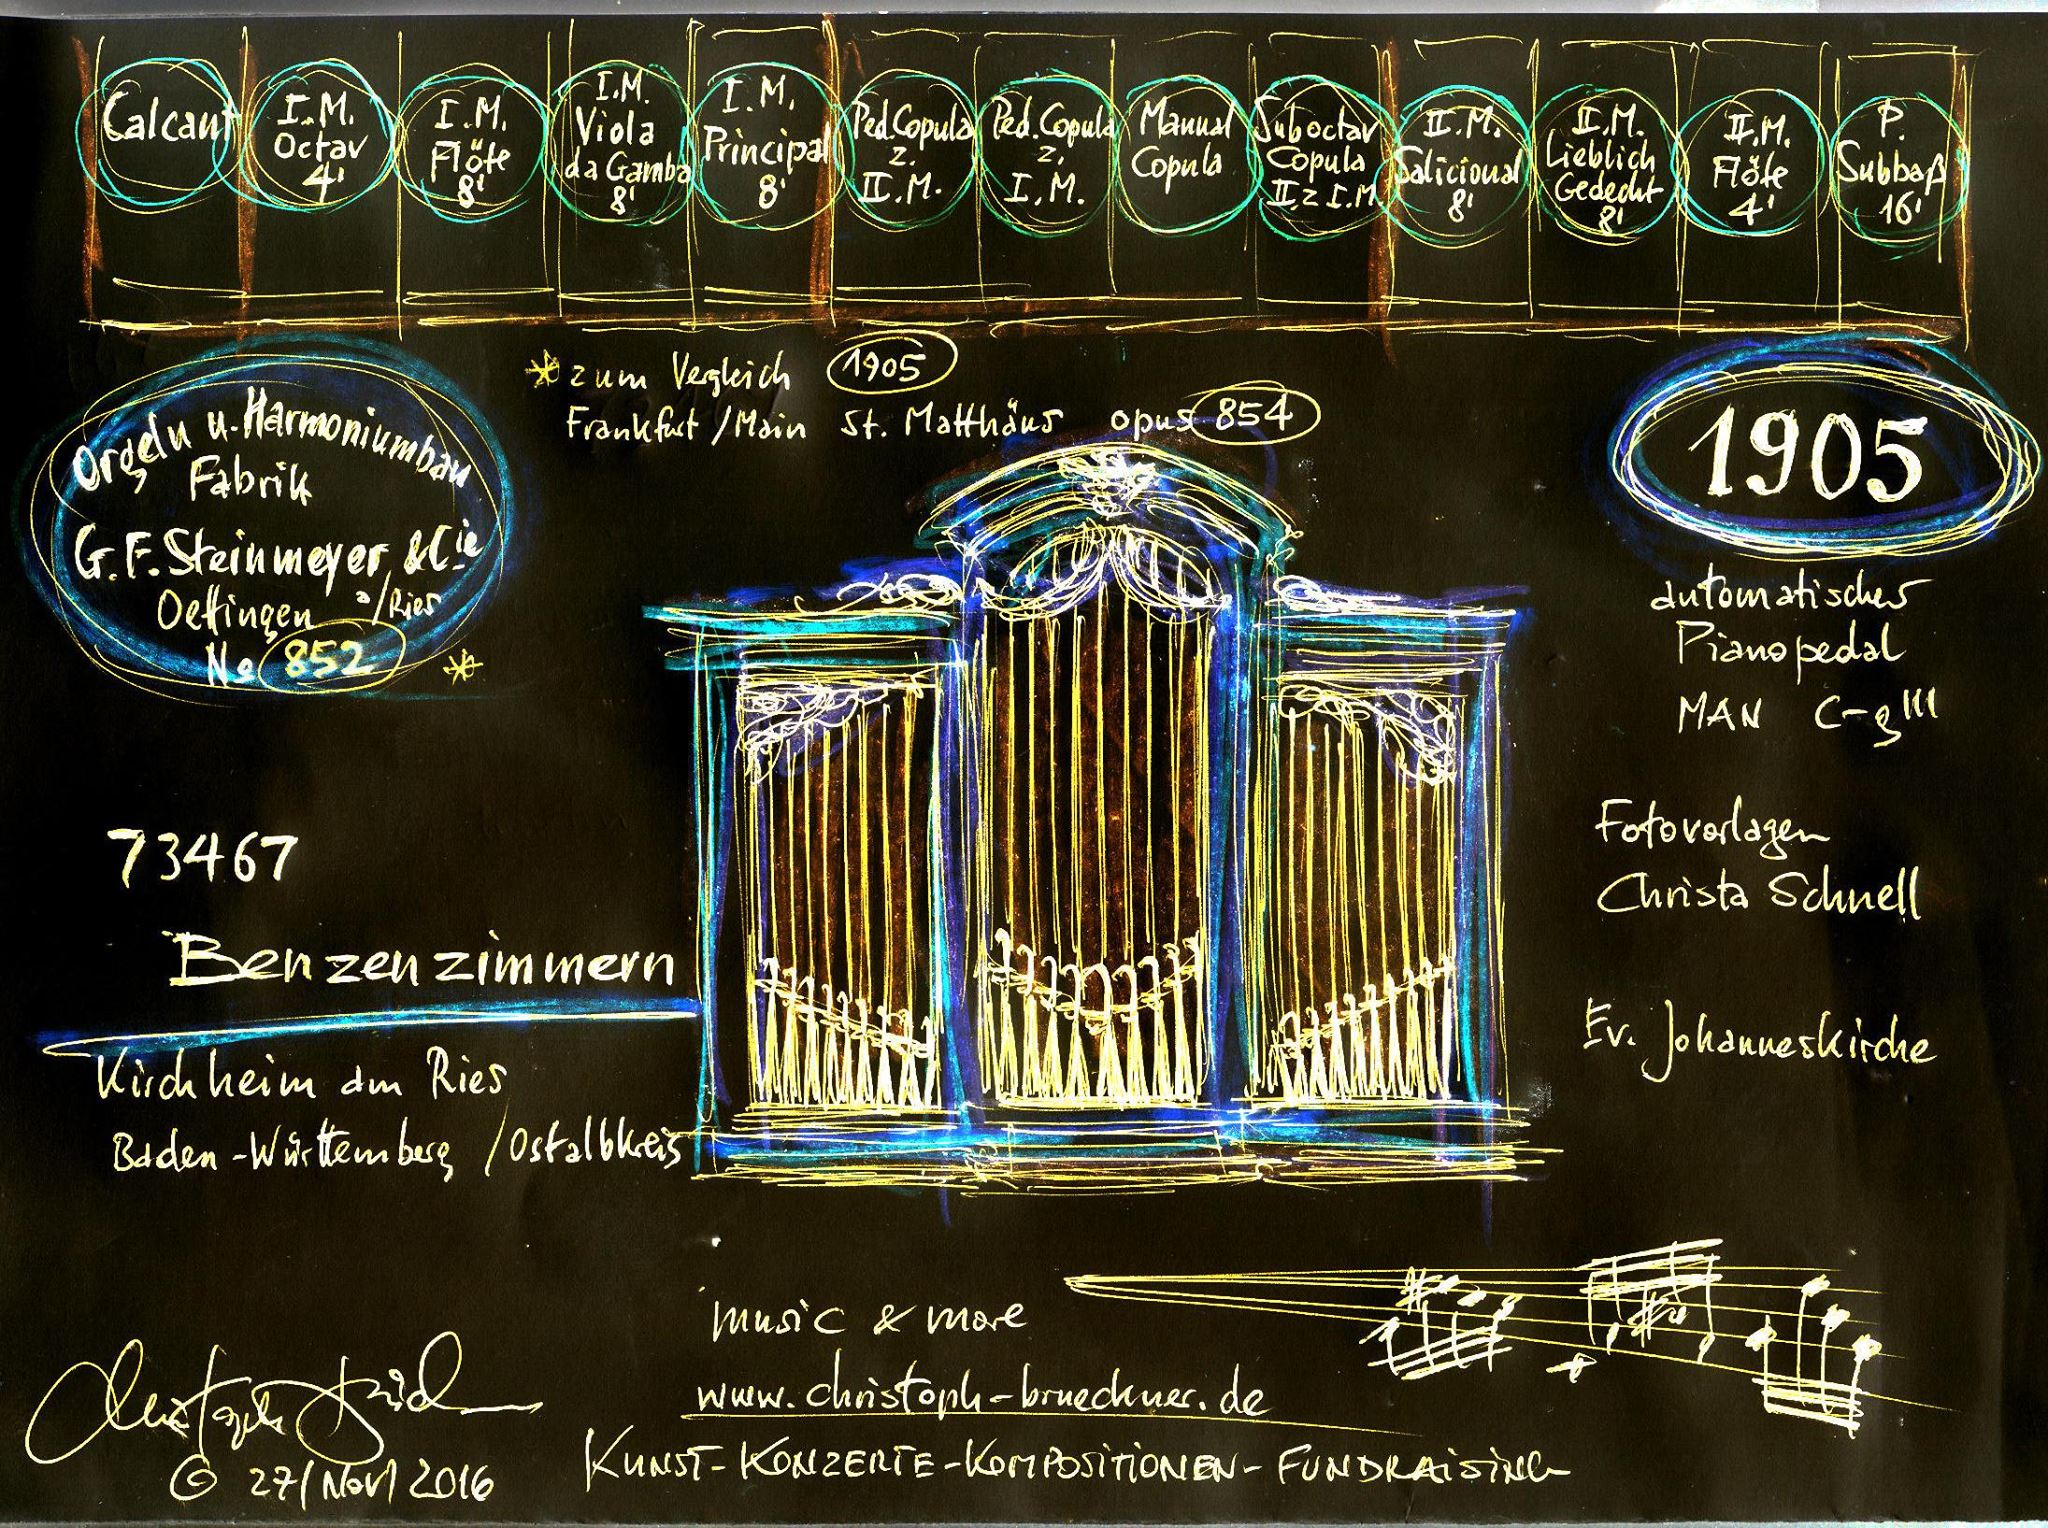 Calcant
I.M.
Octav
4'
I.M.
Flöte
8'
I.M.
Viola
da Gamba
8'
I.M.
Principal
8'
Ped.Copula
z.
II.M.
Ped.Copula
z.
I.M.
Manual
Copula
Suboctav
Copula
II.z I.M
II.M.
Salicional
8'
II.M.
Lieblich
Gedecht
8'
II.M.
Flöte
4'
P.
Subbaß
16'
* zum Vergleich 1905
Frankfurt/Main St. Matthäus opus 854
Orgeln u. Harmoniumbau
Fabrik
G.F. Steinmeyer & Cie
Oettingen a/Ries
No 852 *
1905
automatisches
Pianopedal
MAN C-g'''
73467
Benzenzimmern
Kirchheim am Ries
Baden-Württemberg /Ostalbkreis
Fotovorlagen
Christa Schnell
Ev. Johanneskirche
music & more
www.christoph-brueckner.de
KUNST-KONZERTE-KOMPOSITIONEN-FUNDRAISING
© 27/Nov/2016